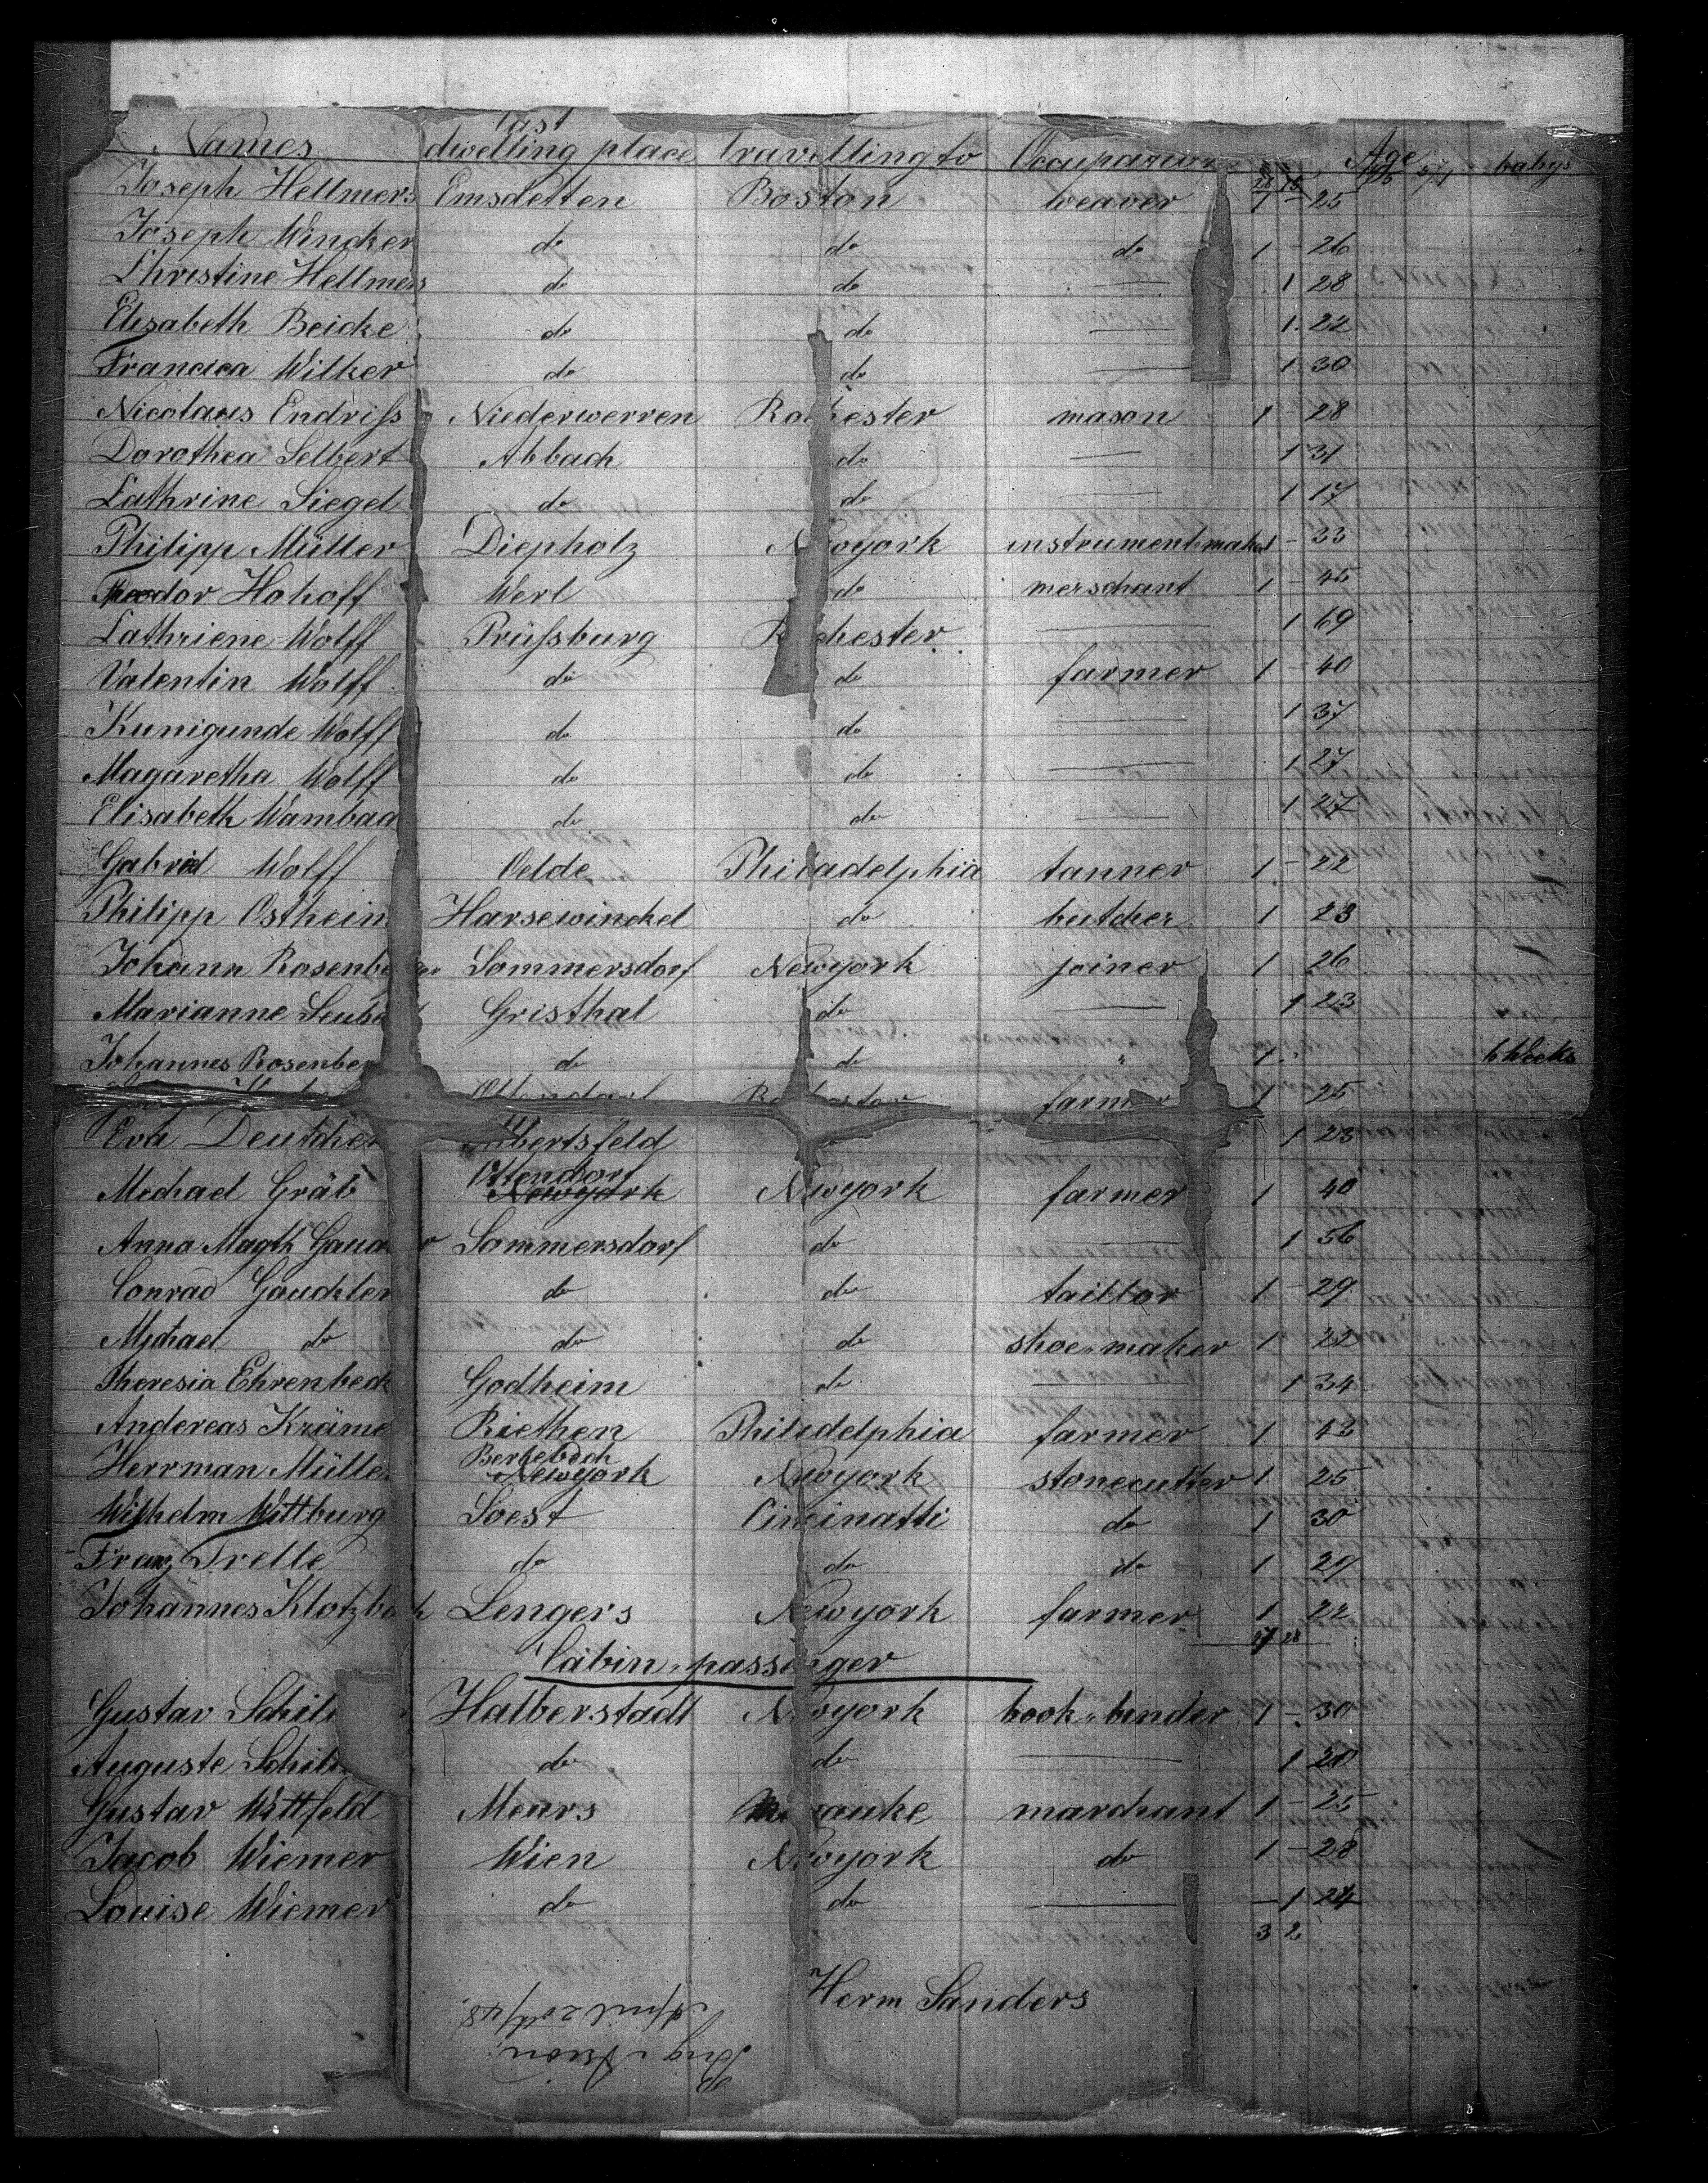 Names last dwelling place travelling to Occupation Age babys
28 15
Joseph Hellmers Emsdetten Boston weaver 1 – 25
Joseph Wincker do do do 1 – 26
Christine Hellmers do do — 1 28
Elisabeth Beicke do do — 1. 22
Francica Wilker do do — 1 30
Nicolaus Endriss Niederwerren Rochester mason 1 – 28
Dorothea Selbert Abbach do — 1 31
Cathrine Siegel do do — 1 17
Philipp Müller Diepholz Newyork instrumentmaker 1 – 33
Theodor Hohoff Werl do merschant 1 – 45
Cathriene Wolff Prüssburg Rochester — 1 69
Valentin Wolff do do farmer 1 – 40
Kunigunde Wolff do do — 1 37
Magaretha Wolff do do — 1 27
Elisabeth Wambaa do do — 1 27
Gabriel Wolff Oelde Philadelphia tanner 1 – 22
Philipp Ostheim Harsewinckel do butcher 1 23
Johann Rosenbe Sommersdorf Newyork joiner 1 26
Marianne Seuba Gristhal do — 1 23
Johannes Rosenber do do " 1 6 Weeks
Ottendorf Rochester farmer 1 25
Eva Deutcher bertsfeld 1 23
Michael Gräb Ottendorf Newyork Newyork farmer 1 40
Anna Magth Gauch r Sommersdorf do — 1 56
Conrad Gauchler do do taillor 1 – 29
Michael do do do shoe-maker 1 22
Theresia Ehrenbeck Godheim do — 1 34
Andereas Kräme Riethen Philidelphia farmer 1 42
Herrman Mülle Berkebach Newyork Newyork stonecutter 1 25
Wilhelm Wittburg Soest Cincinatti do 1 30
Franz Trelle do do do 1 29
Johannes Klotzba k Lengers Newyork farmer 1 22
47 28
Cabin-passenger
Gustav Schil Halberstadt Newyork book-binder 1 – 30
Auguste Schil do do — 1 20
Gustav Wittfeld Meurs Milwauke marchant 1 – 25
Jacob Wiemer Wien Newyork do 1 – 28
Louise Wiemer do do — 1 24
3 2
Herm Sanders
April 20th/48.
Brig Union